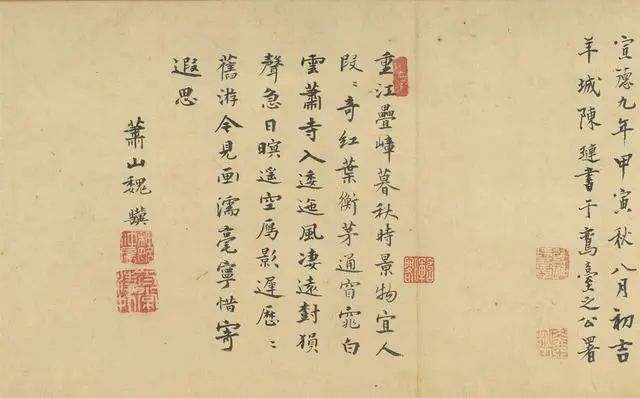 宣德九年甲寅秋八月初吉
羊城陳璉書于鸞臺之公署
重江疊嶂暮秋時景物宜人
段〻奇紅葉衡茅通窅窕白
雲蕭寺入逶迤風凄遠樹猿
聲急日暝遥空鴈影遲歷〻
舊游今見画濡毫寧惜寄
遐思
蕭山魏驥